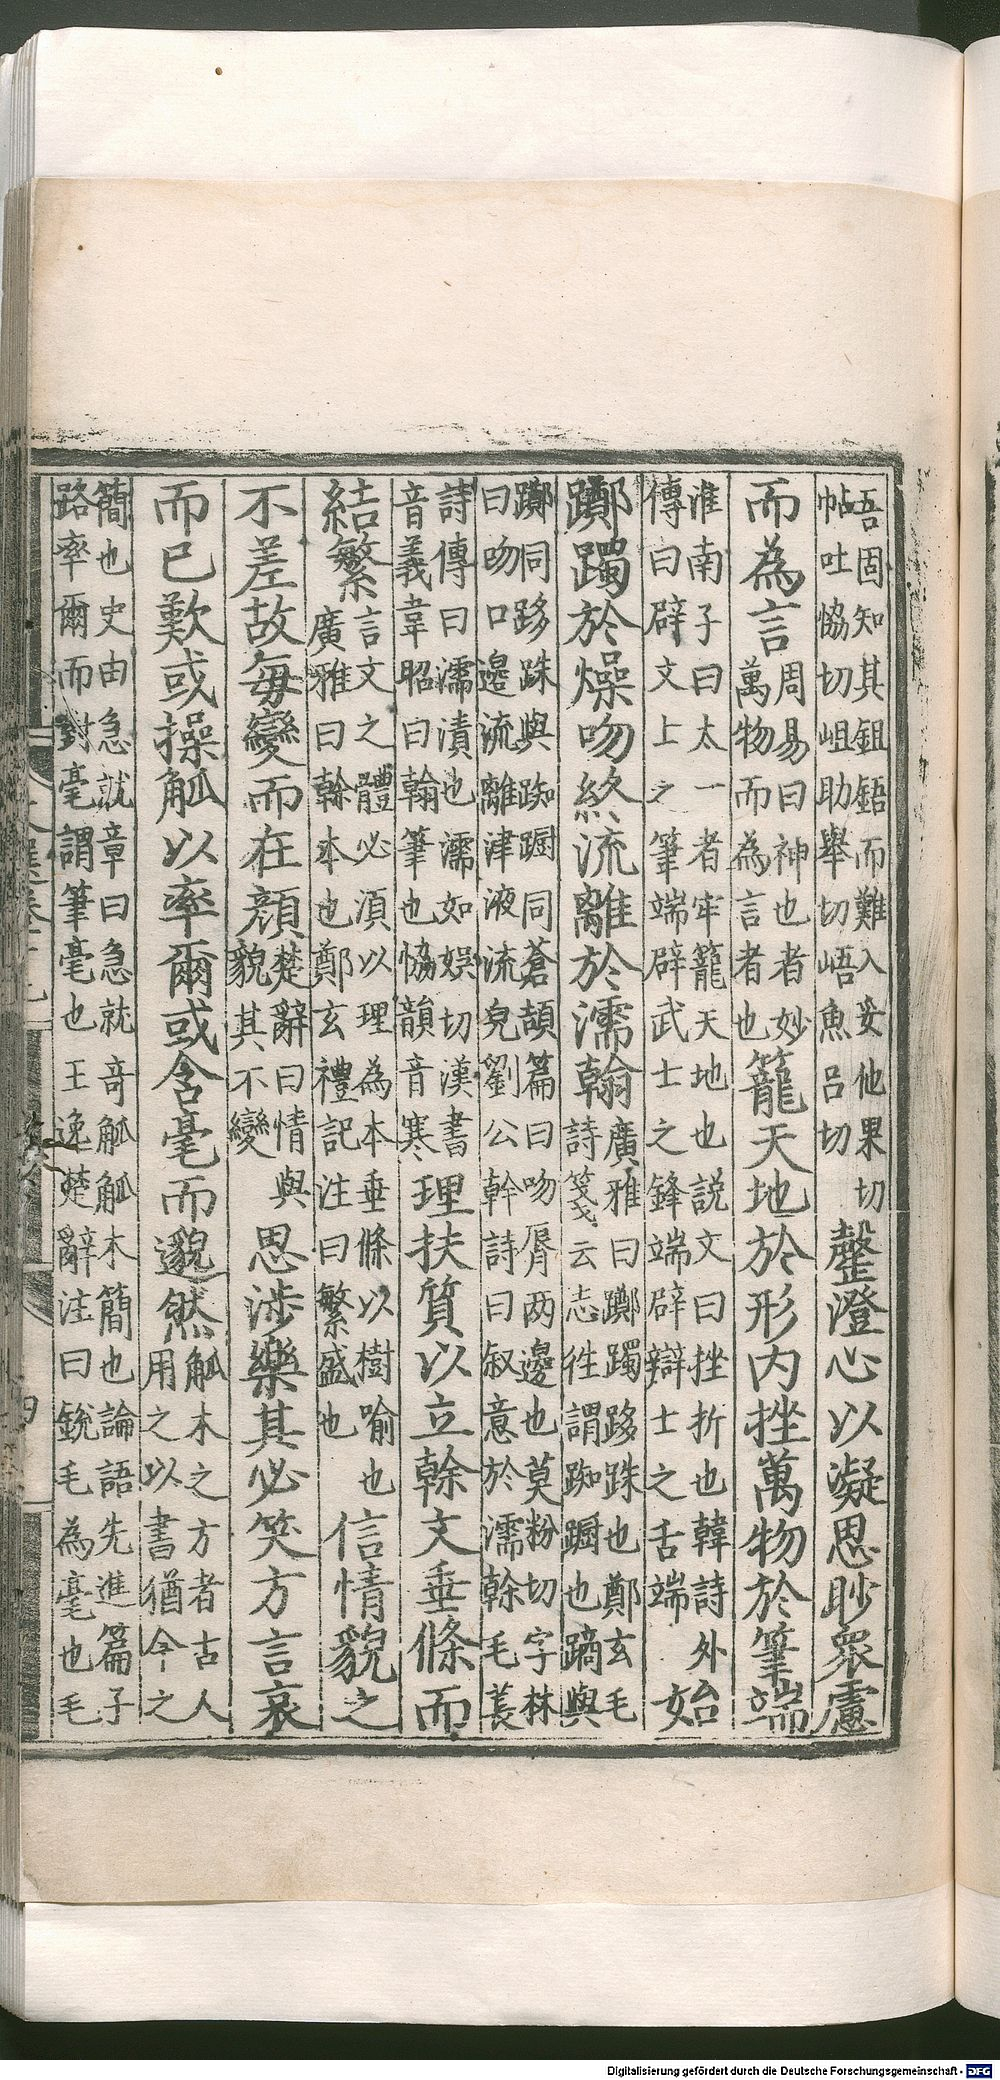 吾固知其鉏鋙而難入妥他果切
帖吐協切岨助舉切峿魚呂切
罄澄心以凝思眇衆慮
而為言
周易曰神也者妙
萬物而為言者也
籠天地於形内挫萬物於筆端
淮南子曰太一者牢籠天地也説文曰挫折也韓詩外
傳曰辟文上之筆端辟武士之鋒端辟辯士之舌端
始
躑躅於燥吻終流離於濡翰
廣雅曰躑躅跢跦也鄭玄毛
詩箋云志徃謂踟躕也蹢與
躑同跢跦與踟躕同蒼頡篇曰吻脣两邊也莫粉切字林
曰吻口邊流離津液流皃劉公幹詩曰叙意於濡榦毛萇
詩傳曰濡漬也濡如娯切漢書
音義韋昭曰翰筆也協韻音寒
理扶質以立榦文垂條而
結繁
言文之體必湏以理為本垂條以樹喻也
廣雅曰榦本也鄭玄禮記注曰繁盛也
信情貌之
不差故每變而在顔
楚辭曰情與
貌其不變
思涉樂其必笑方言哀
而已歎或操觚以率爾或含毫而邈然
觚木之方者古人
用之以書猶今之
簡也史由急就章曰急就奇觚觚木簡也論語先進篇子
路率爾而對毫謂筆毫也王逸楚辭注曰銳毛為毫也毛
四
Digitalisierung gefördert durch die Deutsche Forschungsgemeinschaft - DFG